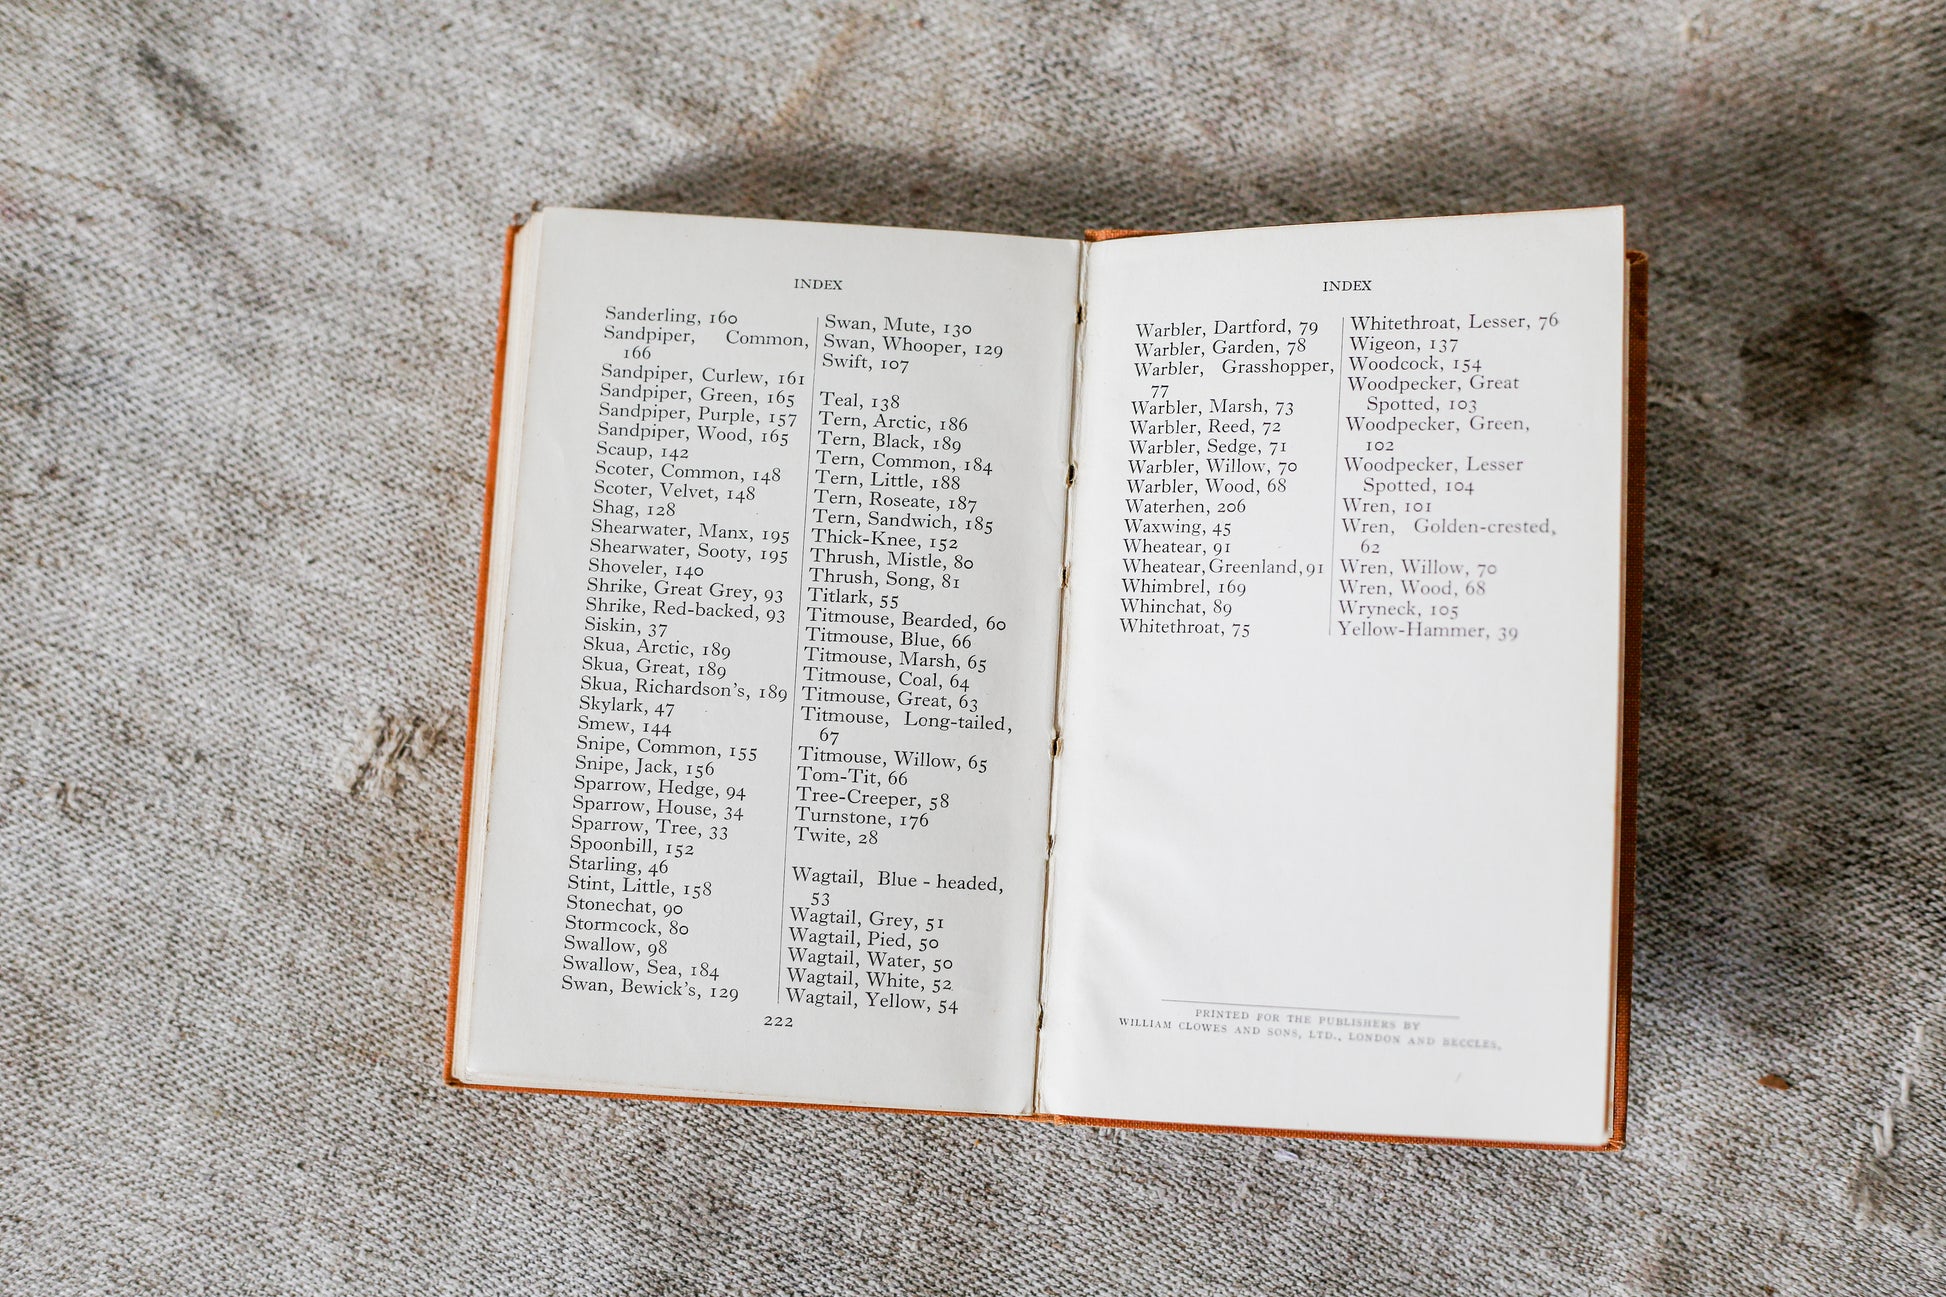 INDEX
Sanderling, 160
Sandpiper, Common,
166
Sandpiper, Curlew, 161
Sandpiper, Green, 165
Sandpiper, Purple, 157
Sandpiper, Wood, 165
Scaup, 142
Scoter, Common, 148
Scoter, Velvet, 148
Shag, 128
Shearwater, Manx, 195
Shearwater, Sooty, 195
Shoveler, 140
Shrike, Great Grey, 93
Shrike, Red-backed, 93
Siskin, 37
Skua, Arctic, 189
Skua, Great, 189
Skua, Richardson's, 189
Skylark, 47
Smew, 144
Snipe, Common, 155
Snipe, Jack, 156
Sparrow, Hedge, 94
Sparrow, House, 34
Sparrow, Tree, 33
Spoonbill, 152
Starling, 46
Stint, Little, 158
Stonechat, 90
Stormcock, 80
Swallow, 98
Swallow, Sea, 184
Swan, Bewick's, 129
Swan, Mute, 130
Swan, Whooper, 129
Swift, 107
Teal, 138
Tern, Arctic, 186
Tern, Black, 189
Tern, Common, 184
Tern, Little, 188
Tern, Roseate, 187
Tern, Sandwich, 185
Thick-Knee, 152
Thrush, Mistle, 80
Thrush, Song, 81
Titlark, 55
Titmouse, Bearded, 60
Titmouse, Blue, 66
Titmouse, Marsh, 65
Titmouse, Coal, 64
Titmouse, Great, 63
Titmouse, Long-tailed,
67
Titmouse, Willow, 65
Tom-Tit, 66
Tree-Creeper, 58
Turnstone, 176
Twite, 28
Wagtail, Blue-headed,
53
Wagtail, Grey, 51
Wagtail, Pied, 50
Wagtail, Water, 50
Wagtail, White, 52
Wagtail, Yellow, 54
222
INDEX
Warbler, Dartford, 79
Warbler, Garden, 78
Warbler, Grasshopper,
77
Warbler, Marsh, 73
Warbler, Reed, 72
Warbler, Sedge, 71
Warbler, Willow, 70
Warbler, Wood, 68
Waterhen, 206
Waxwing, 45
Wheatear, 91
Wheatear, Greenland, 91
Whimbrel, 169
Whinchat, 89
Whitethroat, 75
Whitethroat, Lesser, 76
Wigeon, 137
Woodcock, 154
Woodpecker, Great
Spotted, 103
Woodpecker, Green,
102
Woodpecker, Lesser
Spotted, 104
Wren, 101
Wren, Golden-crested,
62
Wren, Willow, 70
Wren, Wood, 68
Wryneck, 105
Yellow-Hammer, 39
PRINTED FOR THE PUBLISHERS BY
WILLIAM CLOWES AND SONS, LTD., LONDON AND BECCLES.